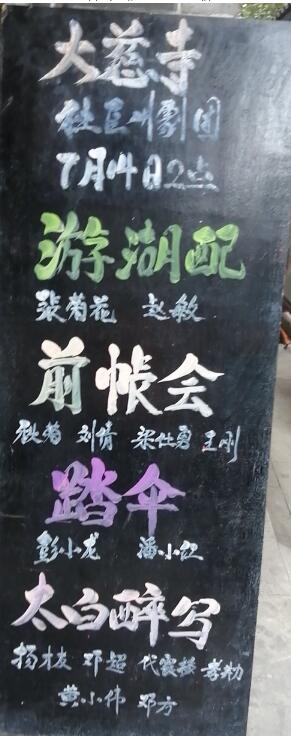 大慈寺
社区川剧团
7月14日2点
游湖配
张菊花 赵敏
前帐会
秋菊 刘情 王刚
踏伞
彭小龙 潘小红
太白醉写
杨枝 邓超
黄小伟 邓方